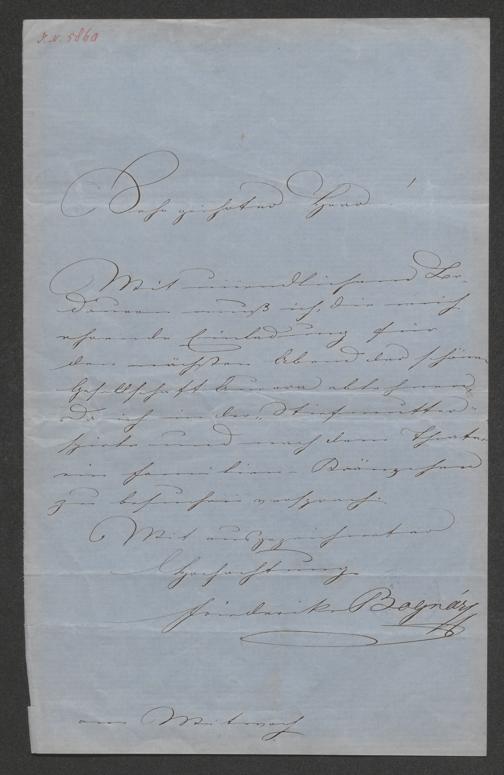 J.N. 5860
Sehr geehrter Herr!
Mit unendlichem Be-
dauern muß ich, die mich
ehrende Einladung für
den nächsten Abend der schönen
Gesellschaft ablehnen,
da ich in der "Stiefmutter"
spiele und nach dem Theater
ein Familien-Kränzchen
zu besuchen versprach.
Mit ausgezeichneter
Hochachtung
Friederike Bognár
am Mittwoch